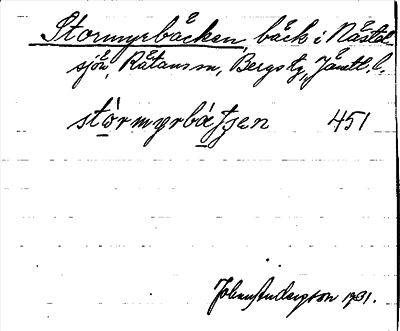 Stormyrbäcken, bäck i Nästel
sjön, Rätans sn, Bergs tg, Jämtl. l.
stòrmyrbá̱ tʃen 451
John Andersson 1931.